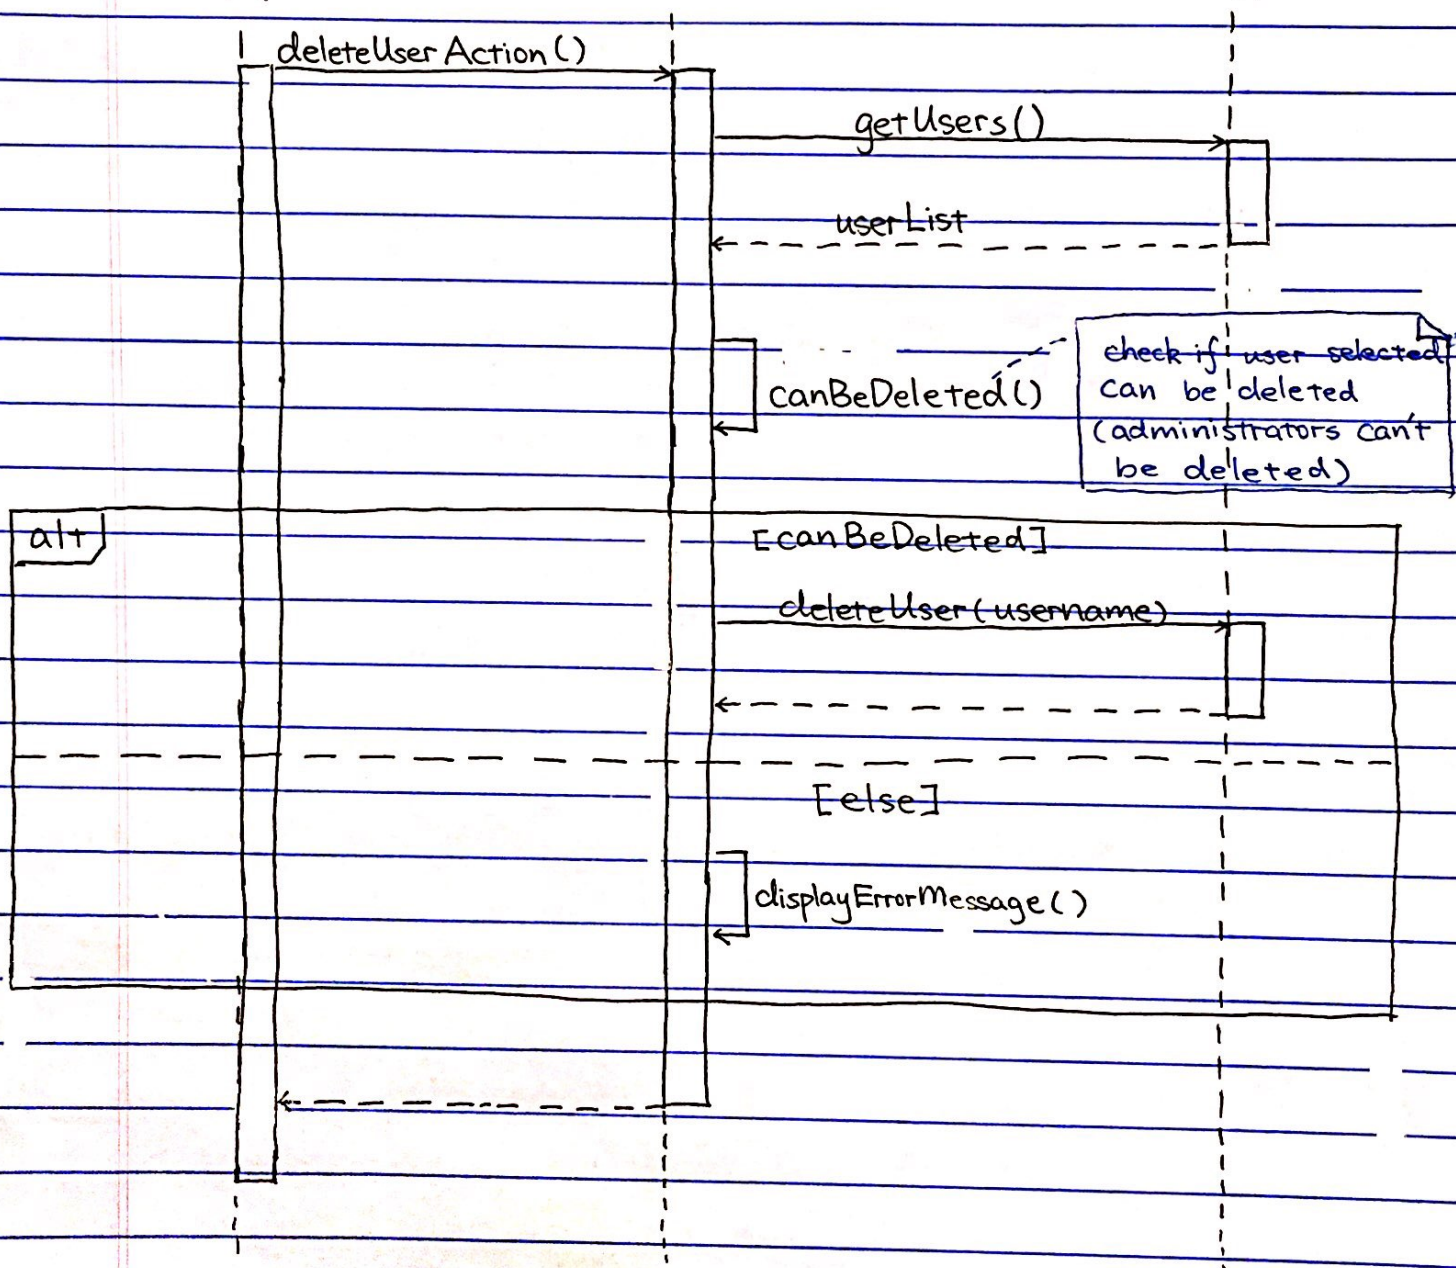 deleteUserAction()
getUsers()
userList
canBeDeleted()
check if user selected
can be deleted
(administrators can't
be deleted)
alt
[canBeDeleted]
deleteUser(username)
[else]
displayErrorMessage()